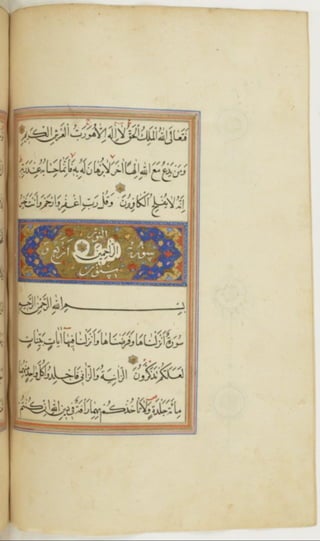 فَتَعَالَى اللهُ الْمَلِكُ الْحَقُّ لَا اِلٰهَ اِلَّا هُوَ رَبُّ الْعَرْشِ الْكَرِيمِ
وَمَنْ يَدْعُ مَعَ اللهِ اِلٰهًا اٰخَرَ لَا بُرْهَانَ لَهُ بِهِ فَاِنَّمَا حِسَابُهُ عِنْدَ رَبِّهِ
اِنَّهُ لَا يُفْلِحُ الْكَافِرُونَ وَقُلْ رَبِّ اغْفِرْ وَارْحَمْ وَاَنْتَ خَيْرُ
النور
سورة الراحمين اربع و
ستون
بِسْمِ اللهِ الرَّحْمٰنِ الرَّحِيمِ
سُورَةٌ اَنْزَلْنَاهَا وَفَرَضْنَاهَا وَاَنْزَلْنَا فِيهَا اٰيَاتٍ بَيِّنَاتٍ
لَعَلَّكُمْ تَذَكَّرُونَ اَلزَّانِيَةُ وَالزَّانِي فَاجْلِدُوا كُلَّ وَاحِدٍ مِنْهُمَا
مِائَةَ جَلْدَةٍ وَلَا تَأْخُذْكُمْ بِهِمَا رَأْفَةٌ فِي دِينِ اللهِ اِنْ كُنْتُمْ